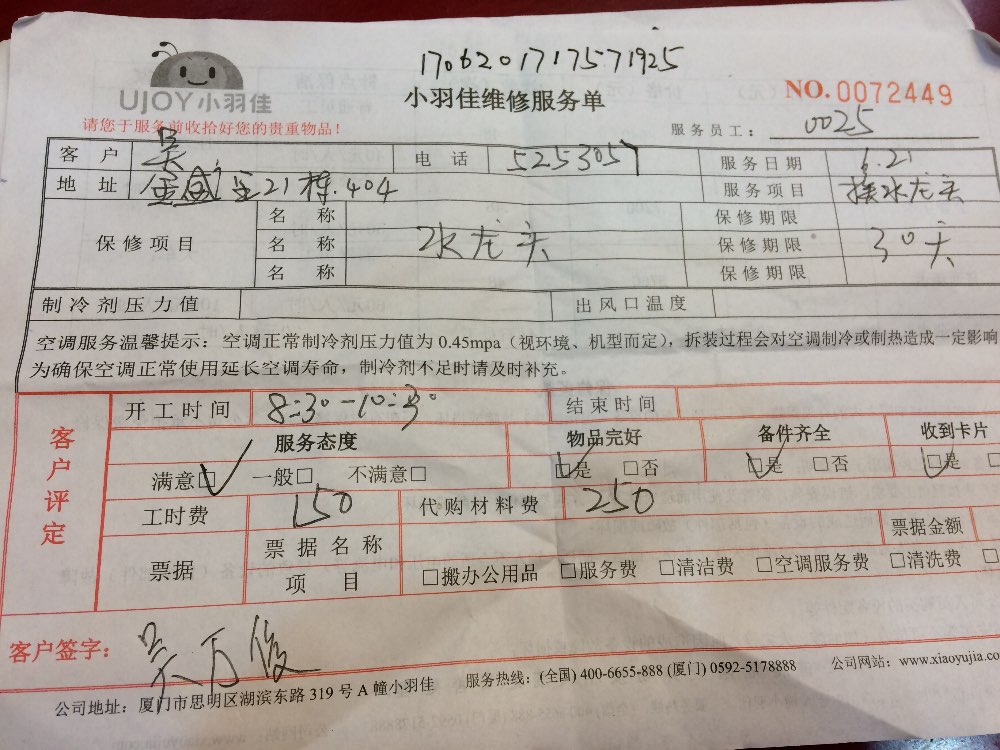 170620171757 1925
UJOY小羽佳
小羽佳维修服务单
NO.0072449
请您于服务前收拾好您的贵重物品！
服务员工：0025
客 户 吴 电 话 5253057 服务日期 6.21
地 址 21栋.404 服务项目 换水龙头
名 称 保修期限
保修项目 名 称 水龙头 保修期限 30天
名 称 保修期限
制冷剂压力值 出风口温度
空调服务温馨提示：空调正常制冷剂压力值为 0.45mpa（视环境、机型而定），拆装过程会对空调制冷或制热造成一定影响
为确保空调正常使用延长空调寿命，制冷剂不足时请及时补充。
客户评定
开工时间 8:30-10:30 结束时间
服务态度 物品完好 备件齐全 收到卡片
满意□✓ 一般□ 不满意□ □✓是 □否 □✓是 □否 □✓是
工时费 150 代购材料费 250
票据 票据名称 票据金额
项 目 □搬办公用品 □服务费 □清洁费 □空调服务费 □清洗费
客户签字：吴万俊
公司地址：厦门市思明区湖滨东路 319 号 A 幢小羽佳 服务热线：(全国) 400-6655-888 (厦门) 0592-5178888 公司网站：www.xiaoyujia.com